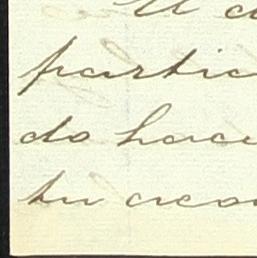 partic
do hace
tu creo